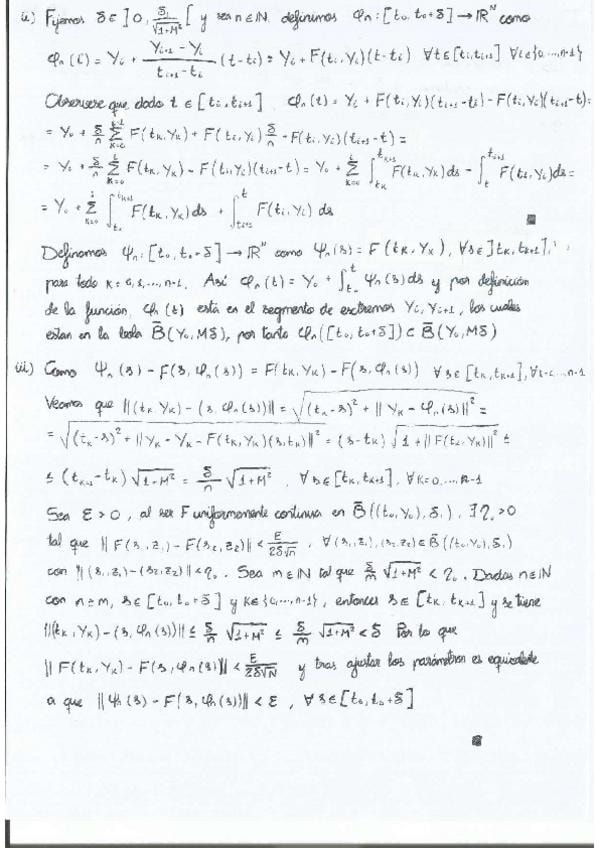 ii) Fijemos δ ∈ ]0, δ₁/√(1+M²)[ y sea n∈ℕ. definimos φn: [t₀, t₀+δ] → ℝᴺ como
φn(t) = Yi + (Yi+1 - Yi)/(ti+1 - ti) (t-ti) = Yi + F(ti,Yi)(t-ti) ∀t∈[ti,ti+1] ∀i∈{0,...,n-1}
Obsérvese que dado t ∈ [ti,ti+1] φn(t) = Yi + F(ti,Yi)(ti+1-ti) - F(ti,Yi)(ti+1-t) =
= Y₀ + δ/n Σ_{K=0}^{i-1} F(tK,YK) + F(ti,Yi) δ/n - F(ti,Yi)(ti+1-t) =
= Y₀ + δ/n Σ_{K=0}^{i} F(tK,YK) - F(ti,Yi)(ti+1-t) = Y₀ + Σ_{K=0}^{i} ∫_{tK}^{tK+1} F(tK,YK)ds - ∫_{t}^{ti+1} F(ti,Yi)ds =
= Y₀ + Σ_{K=0}^{i} ∫_{tK}^{tK+1} F(tK,YK)ds + ∫_{ti+1}^{t} F(ti,Yi) ds
Definamos Ψn: [t₀, t₀+δ] → ℝᴺ como Ψn(s) = F(tK, YK), ∀s∈]tK,tK+1],
para todo K=0,1,...,n-1. Así φn(t) = Y₀ + ∫_{t₀}^{t} Ψn(s)ds y por definición
de la función, φn(t) está en el segmento de extremos Yi, Yi+1, los cuales
estan en la bola B̄(Y₀,Mδ), por tanto φn([t₀,t₀+δ]) ⊂ B̄(Y₀,Mδ)
iii) Como Ψn(s) - F(s,φn(s)) = F(tK,YK) - F(s,φn(s)) ∀s∈[tK,tK+1], ∀ ...n-1
Veamos que ||(tK,YK) - (s,φn(s))|| = √((tK-s)² + ||YK - φn(s)||²) =
= √((tK-s)² + ||YK - YK - F(tK,YK)(s,tK)||²) = (s-tK) √(1+||F(tK,YK)||²) ≤
≤ (tK+1-tK) √(1+M²) = δ/n √(1+M²), ∀s∈[tK,tK+1], ∀K=0,...,n-1
Sea ε>0, al ser F uniformemente continua en B̄((t₀,Y₀),δ₁), ∃η₀>0
tal que ||F(s₁,z₁) - F(s₂,z₂)|| < ε/2δ√N, ∀(s₁,z₁),(s₂,z₂)∈B̄((t₀,Y₀),δ₁)
con ||(s₁,z₁)-(s₂,z₂)|| < η₀. Sea m∈ℕ tal que δ/m √(1+M²) < η₀. Dados n∈ℕ
con n≥m, s∈[t₀,t₀+δ] y K∈{0,...,n-1}, entonces s∈[tK,tK+1] y se tiene
||(tK,YK) - (s,φn(s))|| ≤ δ/n √(1+M²) ≤ δ/m √(1+M²) < δ Por lo que
||F(tK,YK) - F(s,φn(s))|| < ε/2δ√N y tras ajustar los parámetros es equivalente
a que ||Ψn(s) - F(s,φn(s))|| < ε, ∀s∈[t₀,t₀+δ]